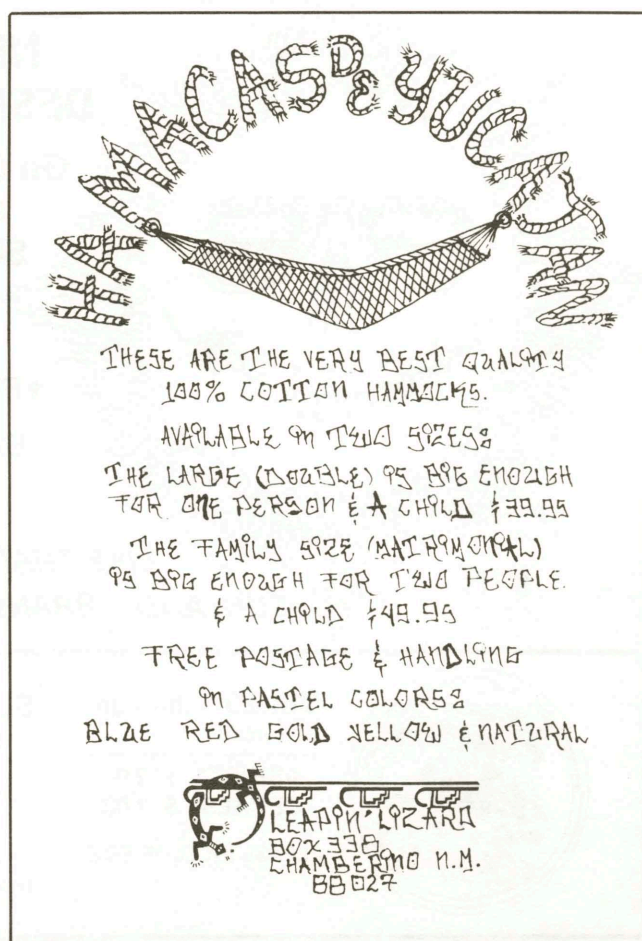 HAMACAS DE YUCATAN
THESE ARE THE VERY BEST QUALITY
100% COTTON HAMMOCKS.
AVAILABLE IN TWO SIZES:
THE LARGE (DOUBLE) IS BIG ENOUGH
FOR ONE PERSON & A CHILD $39.95
THE FAMILY SIZE (MATRIMONIAL)
IS BIG ENOUGH FOR TWO PEOPLE
& A CHILD $49.95
FREE POSTAGE & HANDLING
IN PASTEL COLORS:
BLUE RED GOLD YELLOW & NATURAL
LEAPIN' LIZARD
BOX 338
CHAMBERINO N.M.
88027